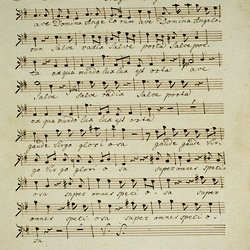 ave Domina Angelorum ave Domina Angelo
rum Salve radix Salve porta Salve por
ex qua mundo lux lux est orta ave
Salve Salve radix Salve porta
ex qua mundo lux est orta
gaude Virgo gloriosa gaude Vir
go Virgo gloriosa super omnes speci
osa super omnes speciosa super
omnes speciosa super omnes specio
sa